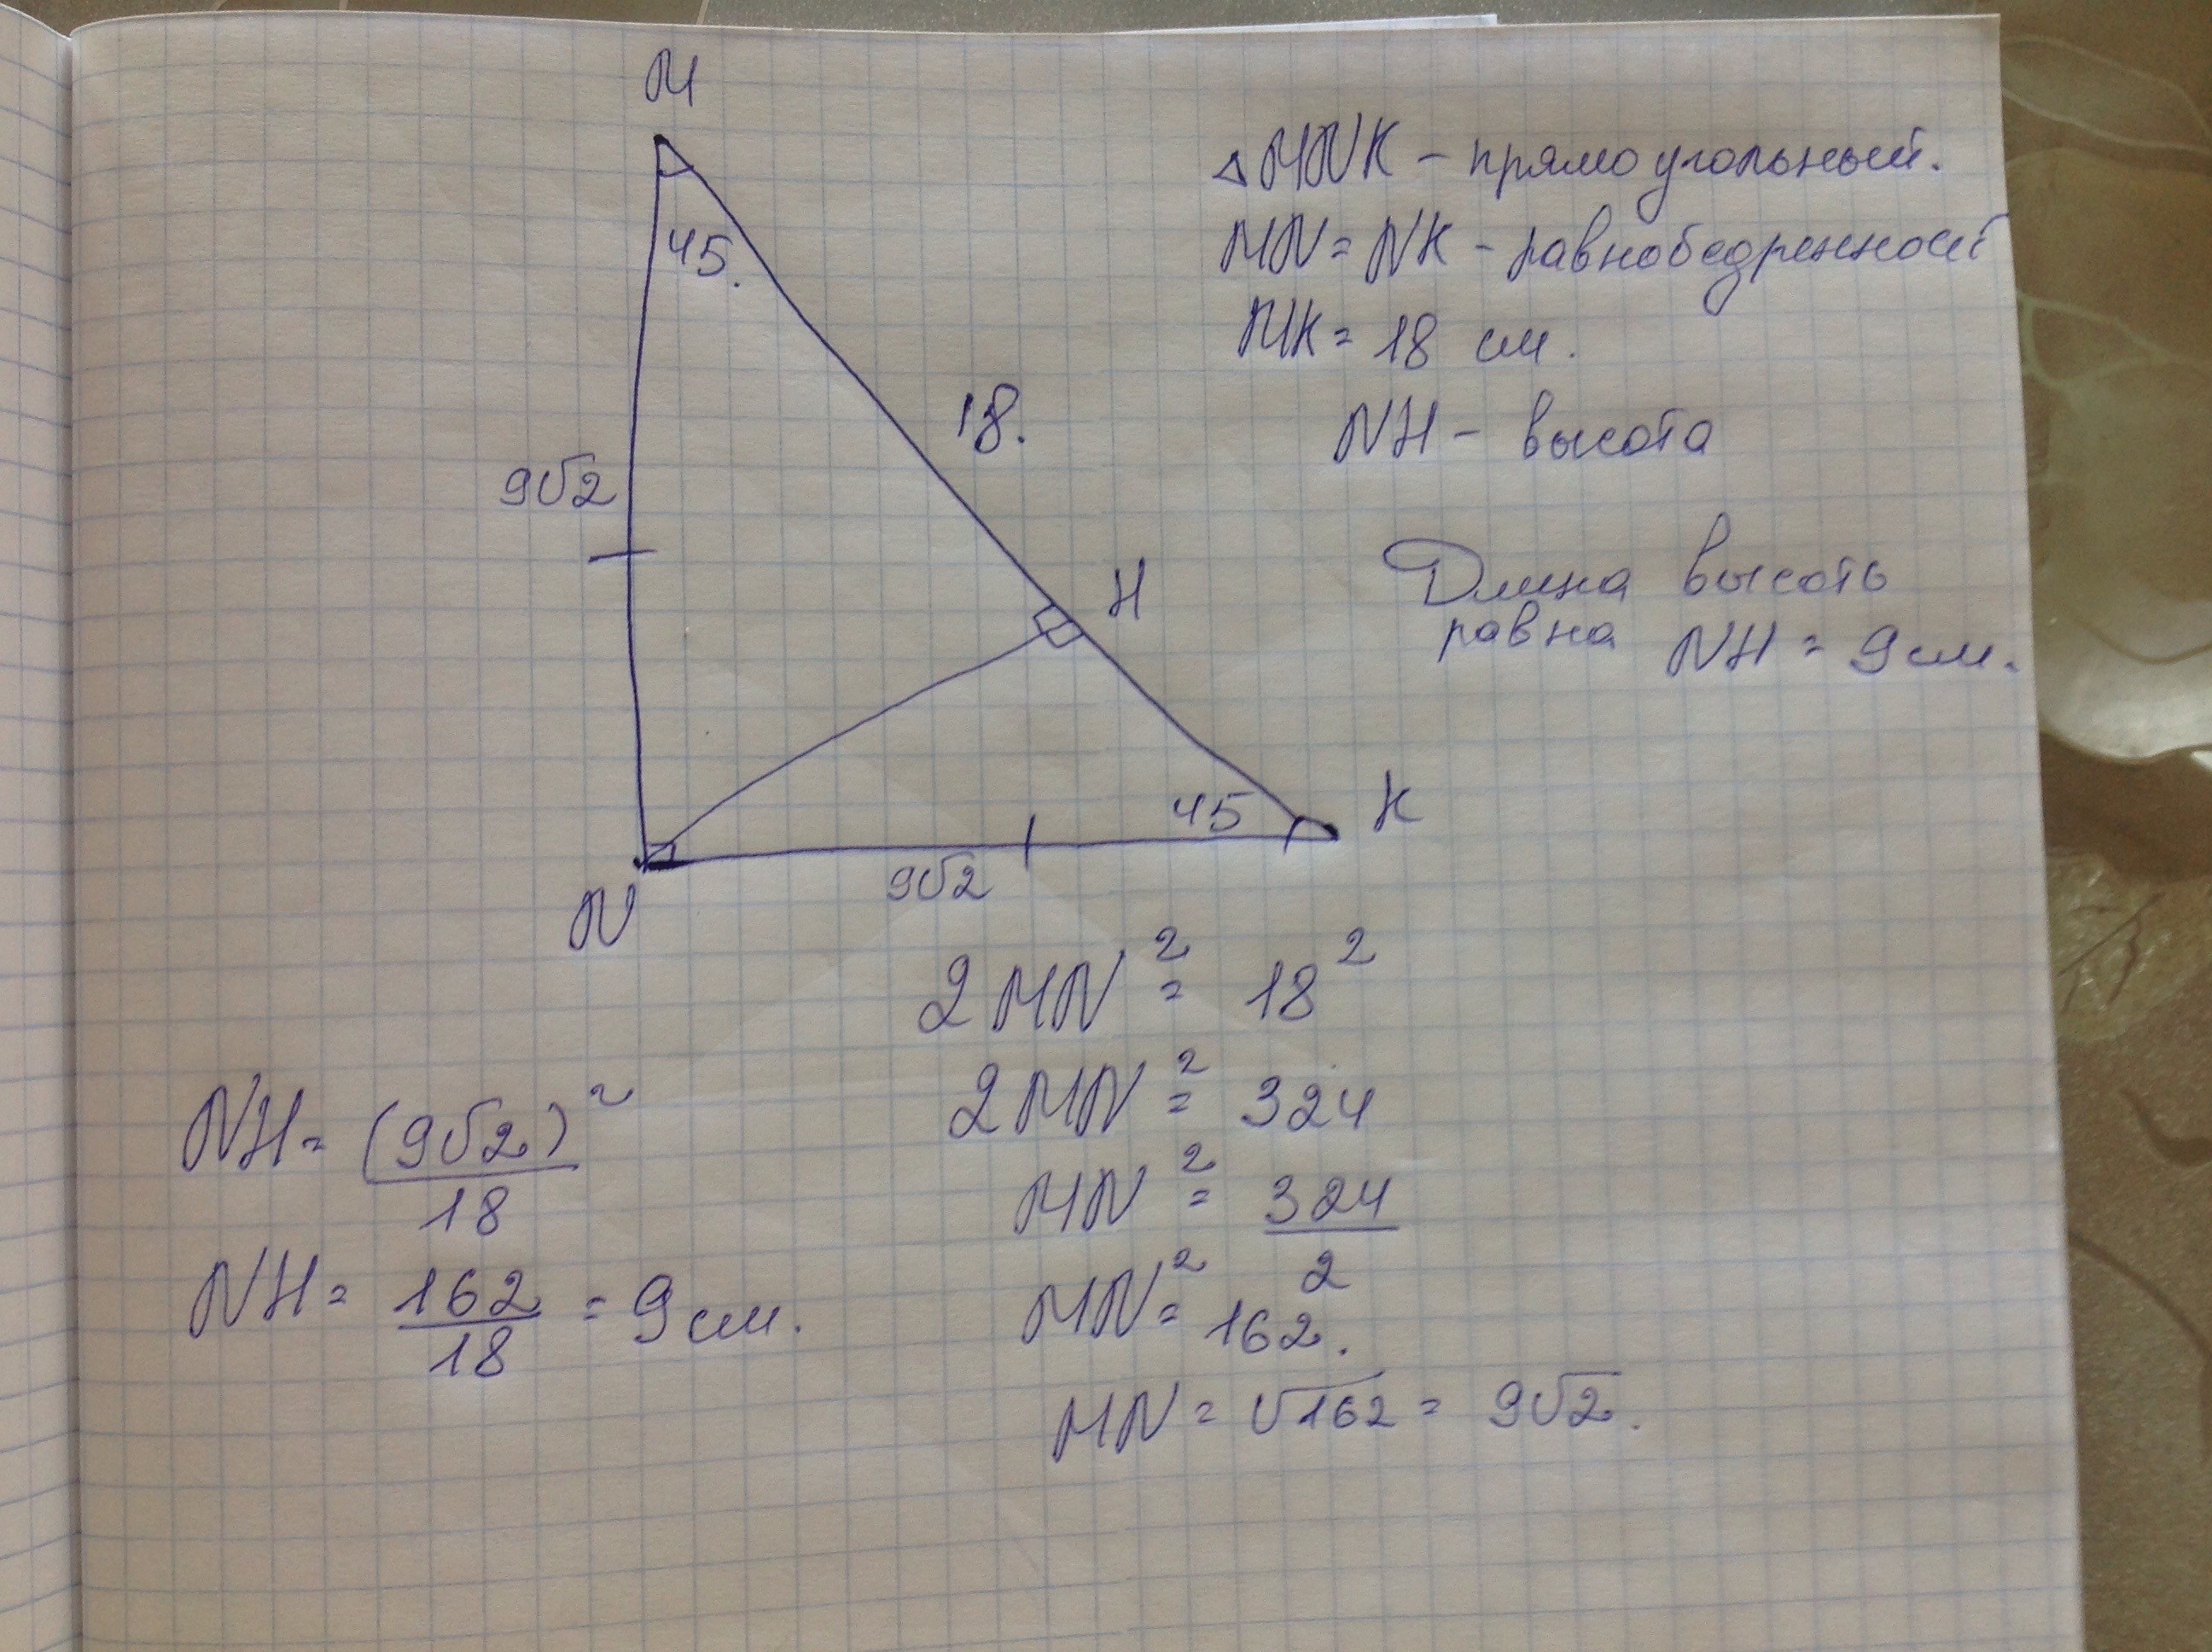 M
45.
18.
9√2
H
45
K
9√2
N
△MNK - прямоугольный.
MN = NK - равнобедренност
MK = 18 см.
NH - высота
Длина высоть
равна NH = 9 см.
2MN² = 18²
2MN² = 324
MN² = 324/2
MN² = 162.
MN = √162 = 9√2.
NH = (9√2)²/18
NH = 162/18 = 9 см.